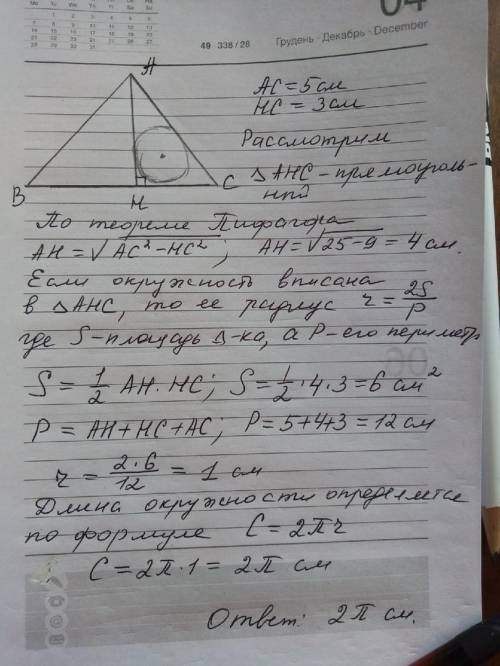 04
49 338 / 28
Грудень · Декабрь · December
A
B
H
C
AC = 5 см
HC = 3 см
Рассмотрим
△AHC - прямоуголь-
ный
По теореме Пифагора
AH = √AC² - HC² ; AH = √25 - 9 = 4 см.
Если окружность вписана
в △AHC, то ее радиус r = 2S/P
где S - площадь △-ка, а P - его периметр
S = 1/2 AH · HC ; S = 1/2 · 4 · 3 = 6 см²
P = AH + HC + AC ; P = 5 + 4 + 3 = 12 см
r = 2·6/12 = 1 см
Длина окружности определяется
по формуле C = 2πr
C = 2π · 1 = 2π см
Ответ: 2π см.